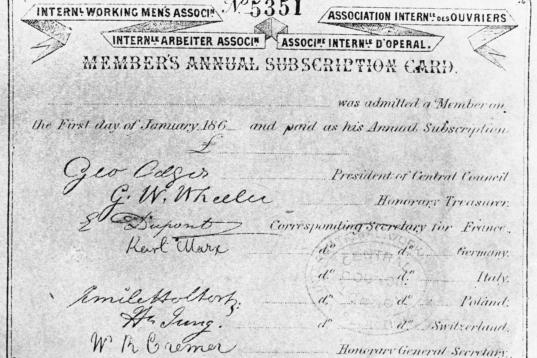 INTERNL. WORKING MENS ASSOCIN. No 5351 ASSOCIATION INTERNLE DES OUVRIERS
INTERNLE ARBEITER ASSOCIN ASSOCINE INTERNLE D'OPERAI.
MEMBER'S ANNUAL SUBSCRIPTION CARD.
was admitted a Member on
the First day of January 186 and paid as his Annual Subscription
£
Geo Odger President of Central Council
G. W. Wheeler Honorary Treasurer.
E Dupont Corresponding Secretary for France.
Karl Marx do do Germany.
do do Italy.
Emile Holtorp. do do Poland.
Hn Jung. do do Switzerland.
W R Cremer Honorary General Secretary.